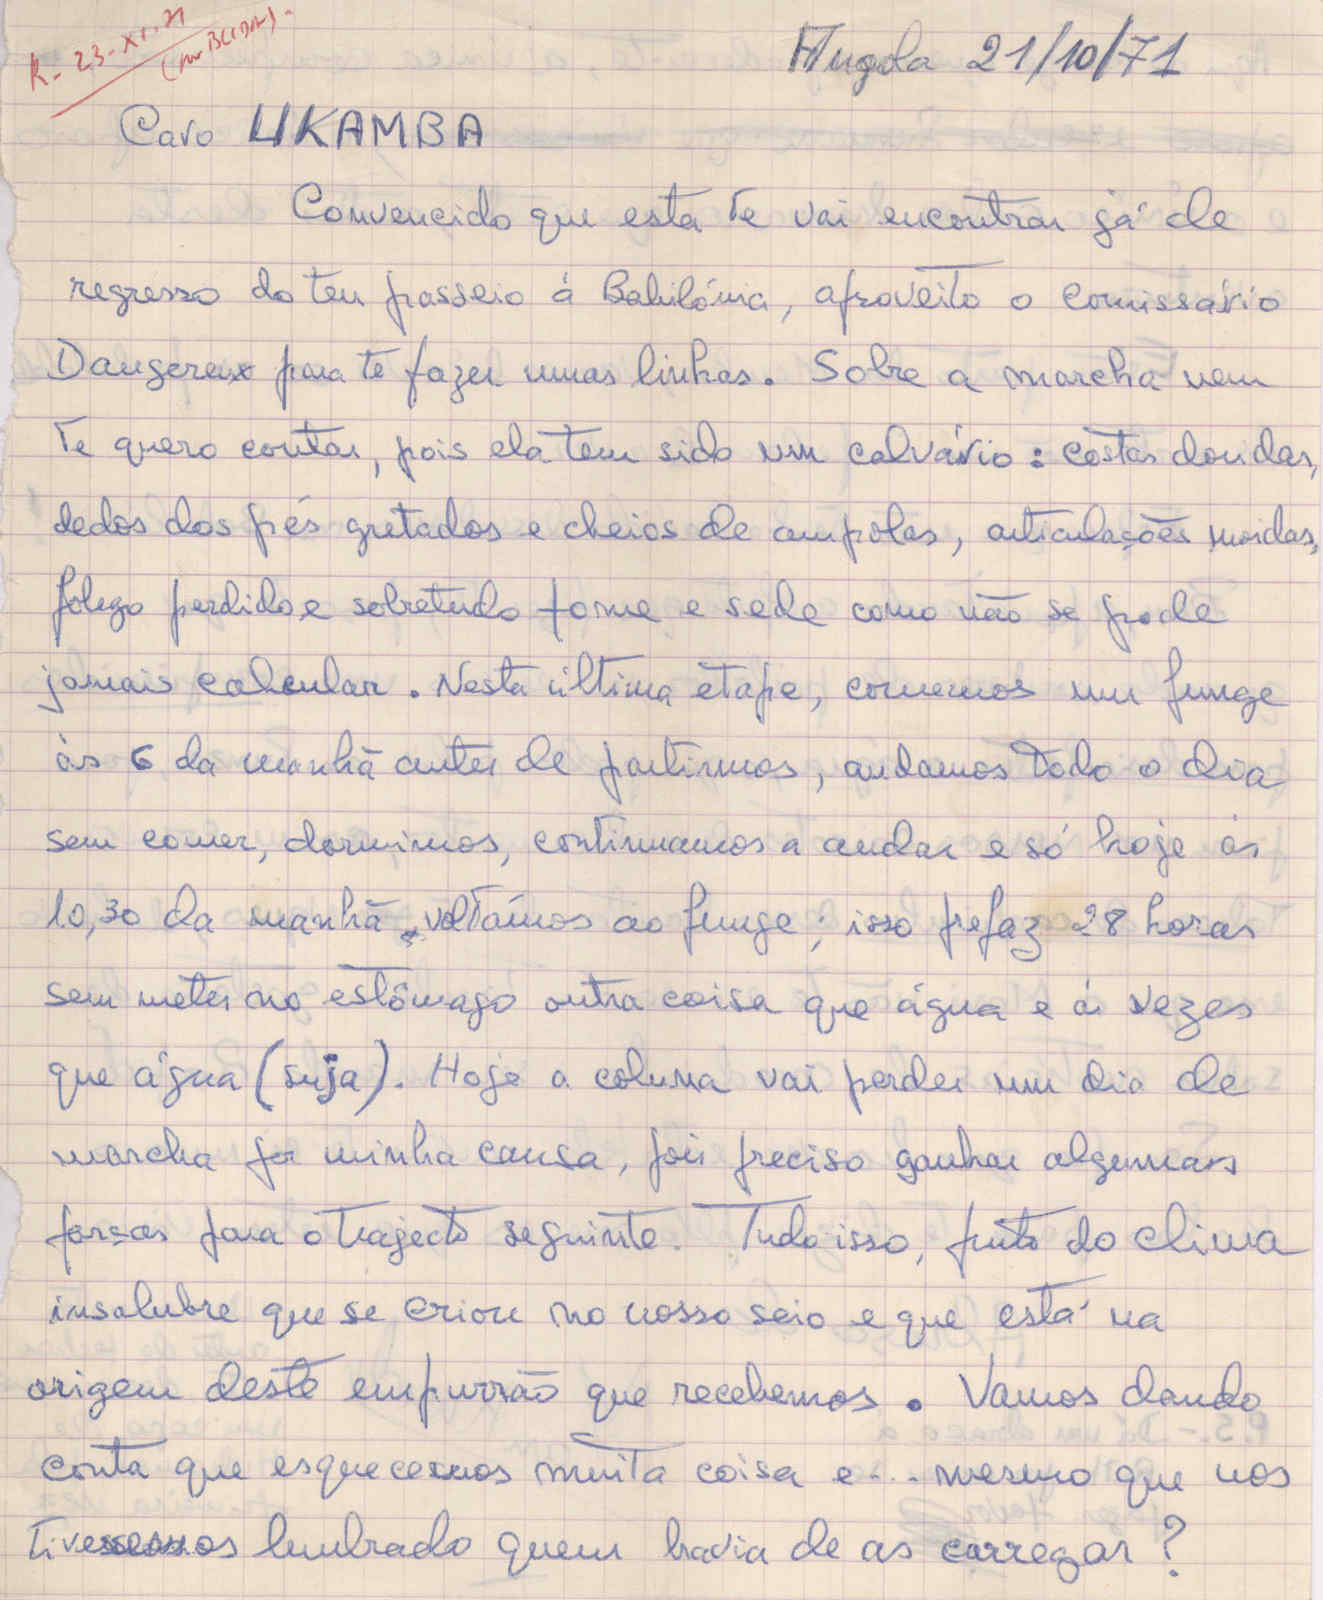 R- 23-XI-71
Angola 21/10/71
Caro UKAMBA
Convencido que esta te vai encontrar já de
regresso do teu passeio á Babilónia, aproveito o comissário
Dangereux para te fazer umas linhas. Sobre a marcha nem
te quero contar, pois ela tem sido um calvário: costas doridas,
dedos dos pés gretados e cheios de ampolas, articulações moidas,
folego perdido e sobretudo fome e sede como não se pode
jamais calcular. Nesta última etape, comemos um funge
ás 6 da manhã antes de partirmos, andamos todo o dia
sem comer, dormimos, continuamos a andar e só hoje ás
10,30 da manhã voltámos ao funge; isso prefaz 28 horas
sem meter no estômago outra coisa que água e ás vezes
que água (suja). Hoje a coluna vai perder um dia de
marcha por minha causa, pois preciso ganhar algumas
forças para o trajecto seguinte. Tudo isso, fruto do clima
insalubre que se criou no nosso seio e que está na
origem deste empurrão que recebemos. Vamos dando
conta que esquecemos muita coisa e... mesmo que nos
tivessemos lembrado quem havia de as carregar?